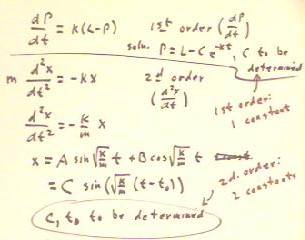 dP/dt = k(L-P)
1st order (dP/dt)
soln. P = L - Ce^-kt, C to be determined
m d²x/dt² = -kx
2d order (d²x/dt)
1st order: 1 constant
d²x/dt² = -k/m x
x = A sin √k/m t + B cos √k/m t
= C sin(√k/m (t-t₀))
2d. order: 2 constants
C, t₀ to be determined